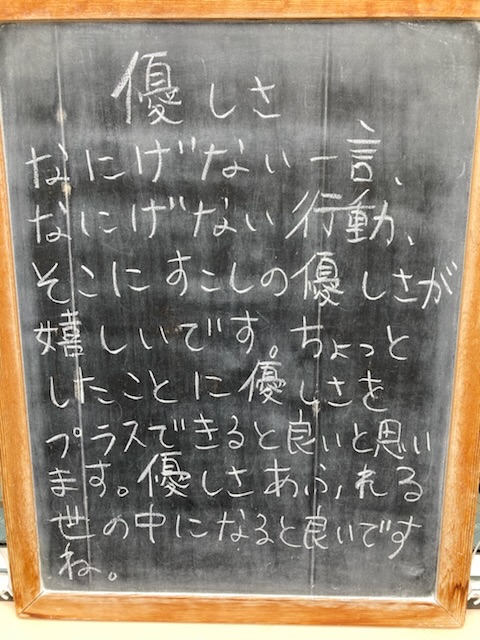 優しさ
なにげない一言、
なにげない行動、
そこにすこしの優しさが
嬉しいです。ちょっと
したことに優しさを
プラスできると良いと思い
ます。優しさあふれる
世の中になると良いです
ね。